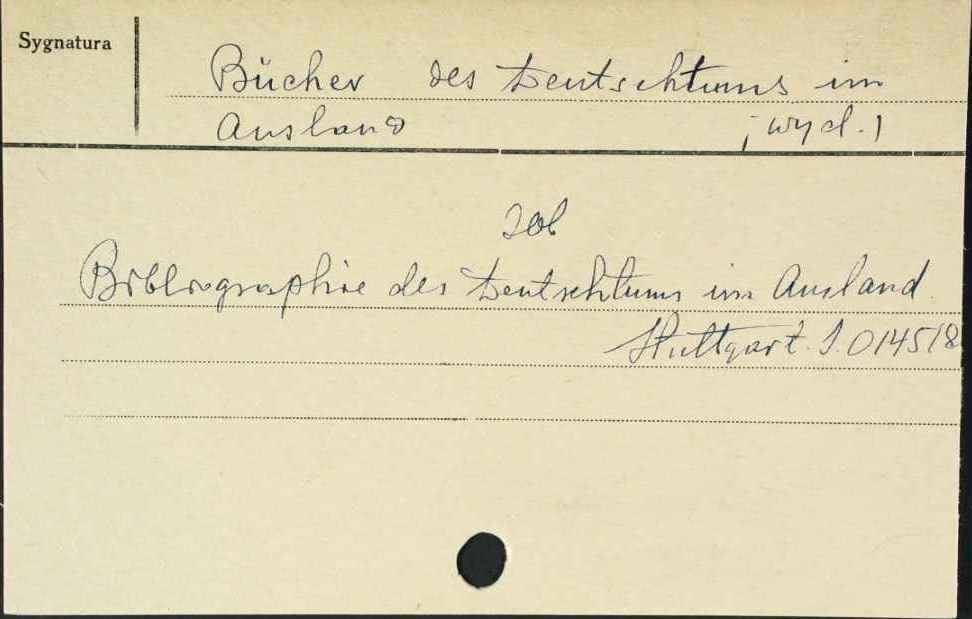 Sygnatura
Bücher des Deutschtums im
Ausland ; wyd. )
zob
Bibliographie des Deutschtums im Ausland.
Stuttgart. S. 014518